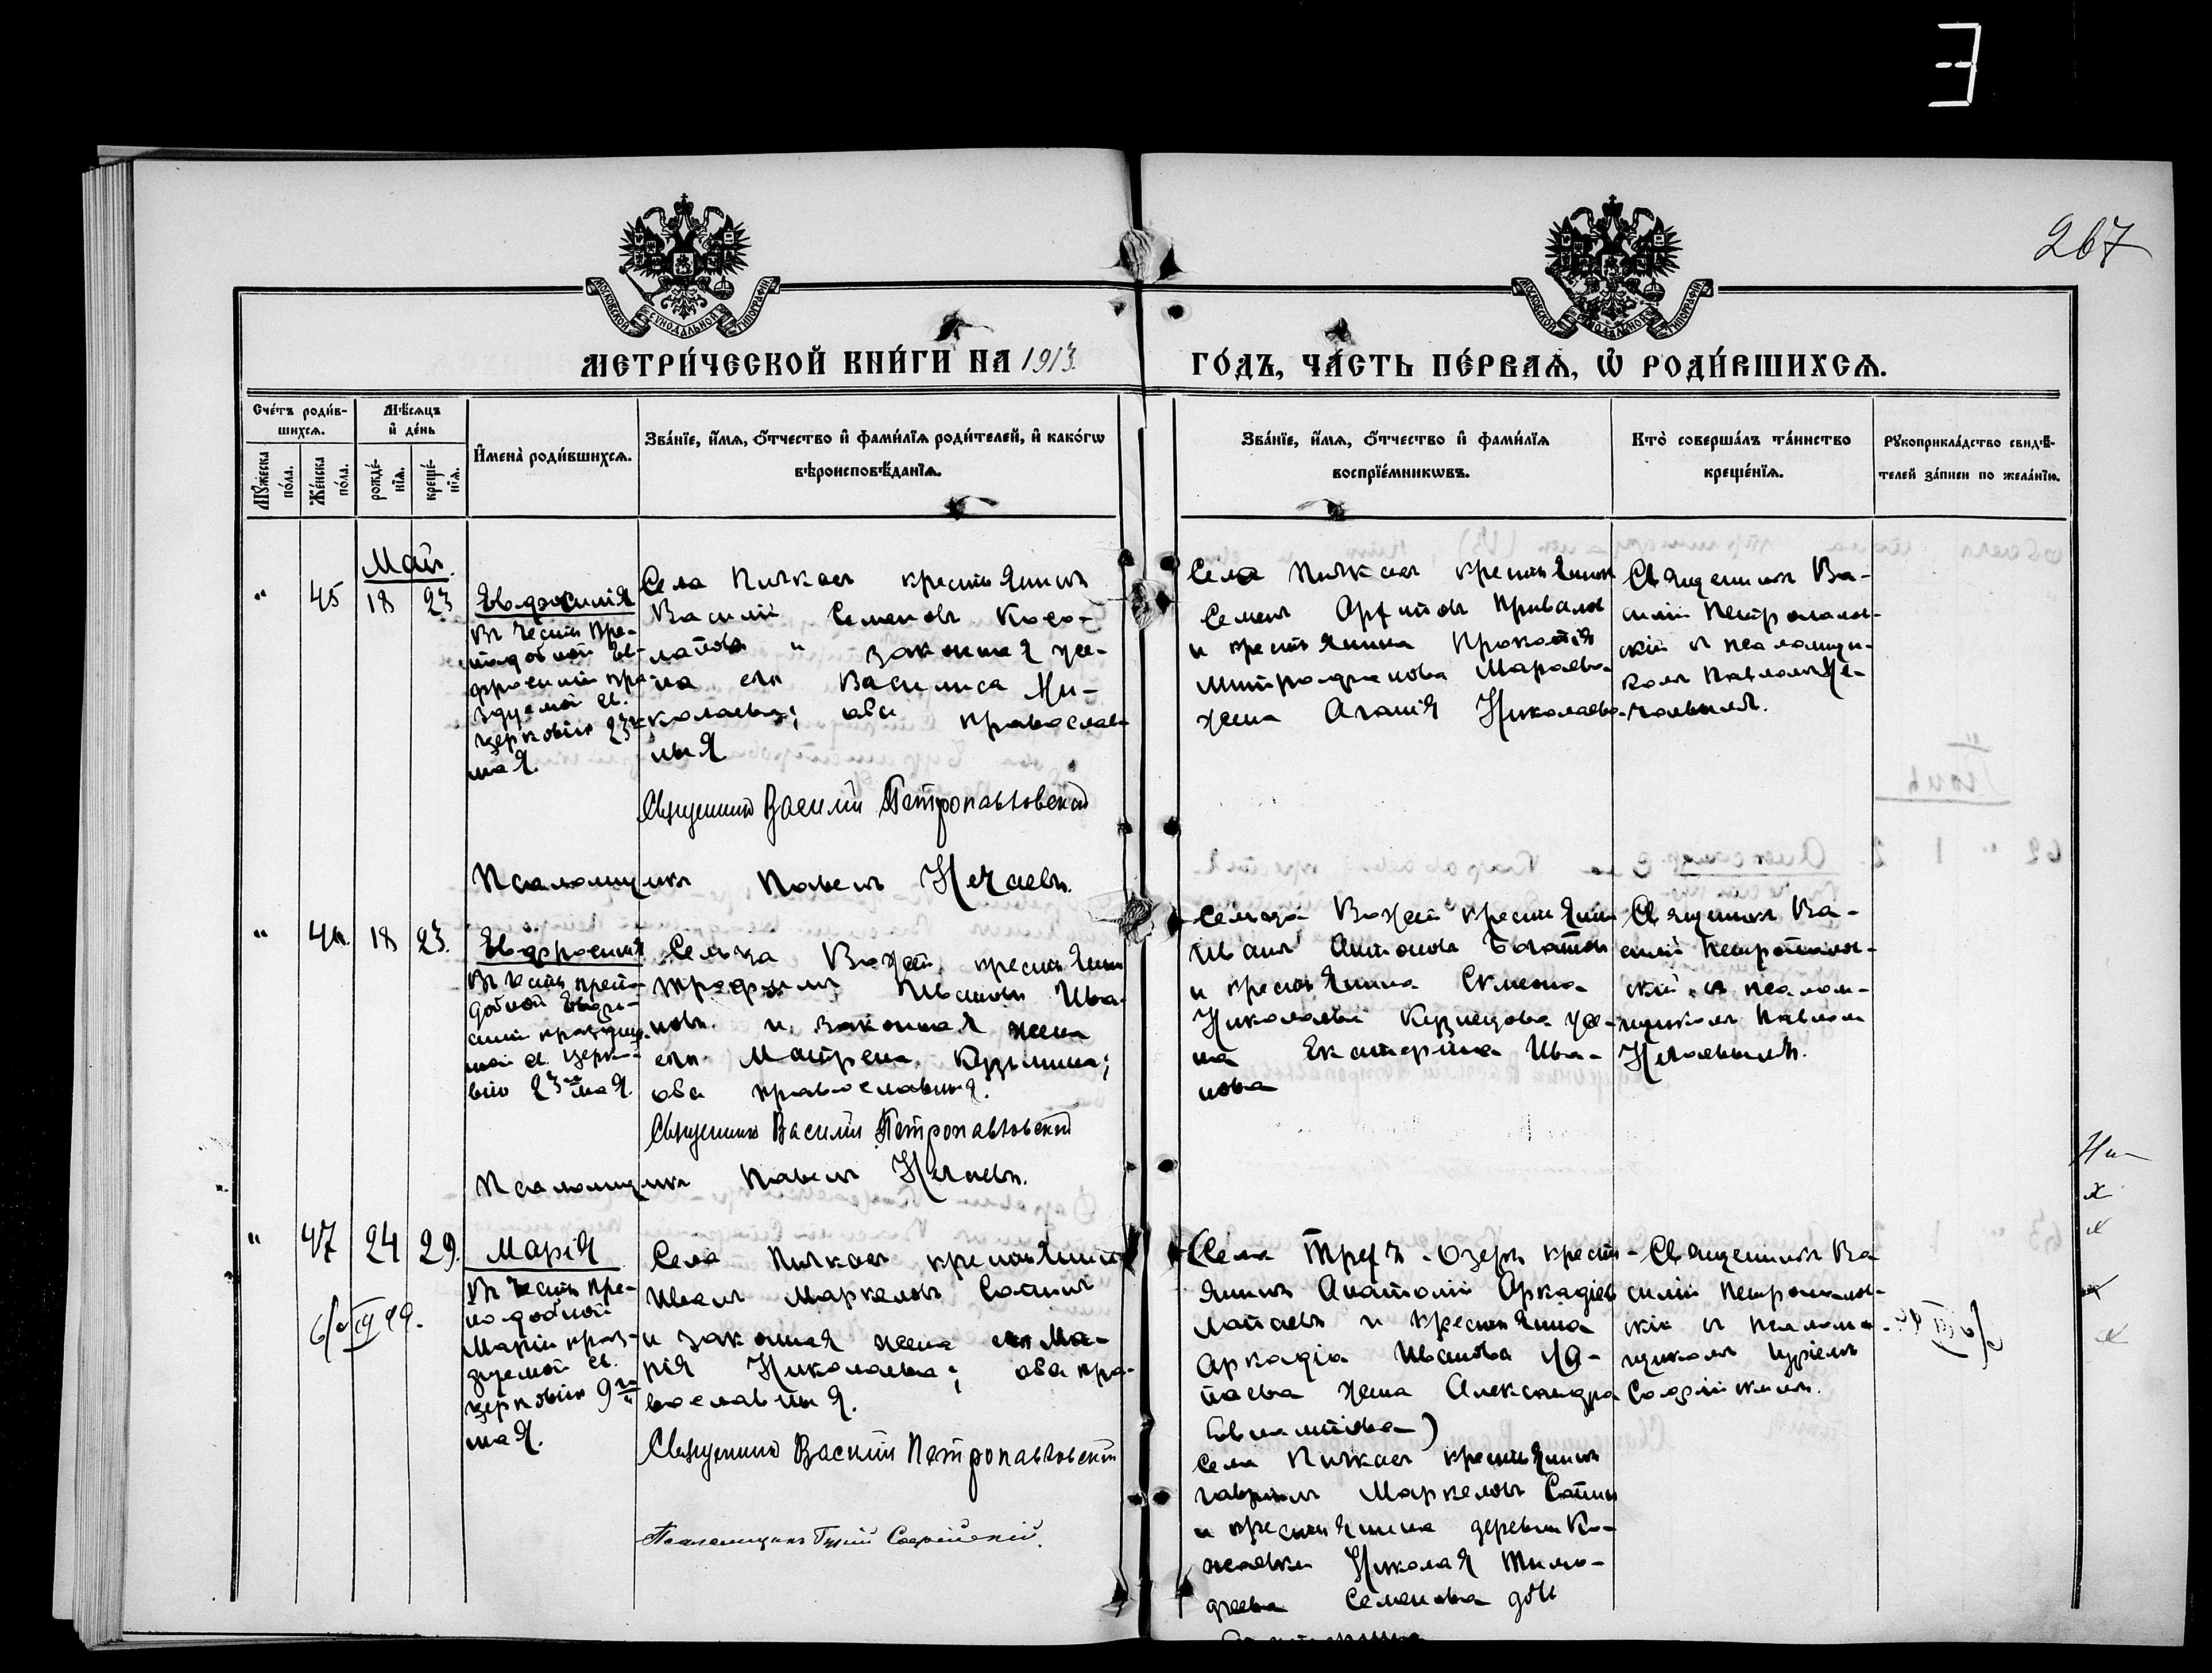 267
МОСКОВСКОЙ СѴНОДАЛЬНОЙ ТИПОГРАФІИ
МОСКОВСКОЙ СѴНОДАЛЬНОЙ ТИПОГРАФІИ
МЕТРИ́ЧЕСКОЙ КНИ́ГИ НА 1913
ГО́ДЪ, ЧА́СТЬ ПЕ́РВАѦ, Ѽ РОДИ́ВШИХСѦ.
Сче́тъ роди́в-
шихсѧ.
Мꙋ́жеска по́ла.
Же́нска по́ла.
Мѣ́сѧцъ
и҆ де́нь
рожде́-
нїѧ.
креще́-
нїѧ.
И҆мена̀ роди́вшихсѧ.
Зва́нїе, и҆́мѧ, ѻ҆́тчество и҆ фами́лїѧ роди́телей, и҆ како́гѡ
вѣроисповѣ́данїѧ.
Зва́нїе, и҆́мѧ, ѻ҆́тчество и҆ фами́лїѧ
воспрїе́мникѡвъ.
Кто̀ соверша́лъ та́инство
креще́нїѧ.
Рꙋкоприкла́дство свидѣ́-
телей за́писи по жела́нїю.
Май.
" 45 18 23
Евдросинія
Въ честь пре-
подобной Ев-
фросиніи пра-
здуемой св.
церковію 23го
мая.
Села Пичкаса крестьянинъ
Василій Семеновъ Косо-
лаповъ и законная же-
на его Василиса Ни-
колаева; оба православ-
ныя.
Священникъ Василій Петропавловскій
Псаломщикъ Павелъ Нечаевъ.
Села Пичкаса крестьянинъ
Семенъ Арефьевъ Приваловъ
и крестьянина Прокопія
Митрофанова
жена Агапія Николаева
Священникъ Ва-
силій Петропавлов-
скій съ псаломщи-
комъ Павломъ Не-
чаевымъ.
" 46 18 23.
Евфросинія
Въ честь препо-
добной Евфро-
синіи праздну-
мой св. церко-
вію 23го мая.
Сельца крестьянинъ
Трофимъ Ивановъ Ива-
новъ и законная жена
его Матрена Кузьмина;
оба православныя.
Священникъ Василій Петропавловскій
Псаломщикъ Павелъ Нечаевъ.
Сельца крестьянинъ
Иванъ Антоновъ Богатовъ
и крестьянина Семена
Николаева Кузнецова же-
на Екатерина Ива-
нова
Священникъ Ва-
силій Петропавлов-
скій съ псалом-
щикомъ Павломъ
Нечаевымъ.
" 47 24 29.
Марія
Въ честь пре-
подобной
Маріи праз-
дуемой св.
церковію 9го
мая.
Села Пичкаса крестьянинъ
Иванъ Маркеловъ Сапинъ
и законная жена его Ма-
рія Николаева; оба пра-
вославныя.
Священникъ Василій Петропавловскій
Псаломщикъ Гурій Софійскій.
(Села Трехъ-Озеръ кресть-
янинъ Анатолій Аркадіевъ
Лапаевъ и крестьянина
Аркадія Иванова Ла-
паева жена Александра
)
Села Пичкаса крестьянинъ
Гавріилъ Маркеловъ Сапинъ
и крестьянина деревни Ко-
жаевки Николая Тимо-
феева Семенова дочь
Священникъ Ва-
силій Петропавлов-
скій съ псалом-
щикомъ Гуріемъ
Софійскимъ.